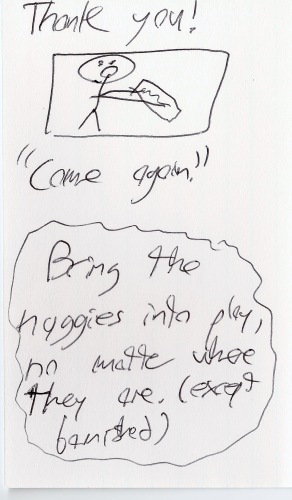 Thank you!
"Come again."
Bring the
huggies into play,
no matte where
they are. (except
banished)